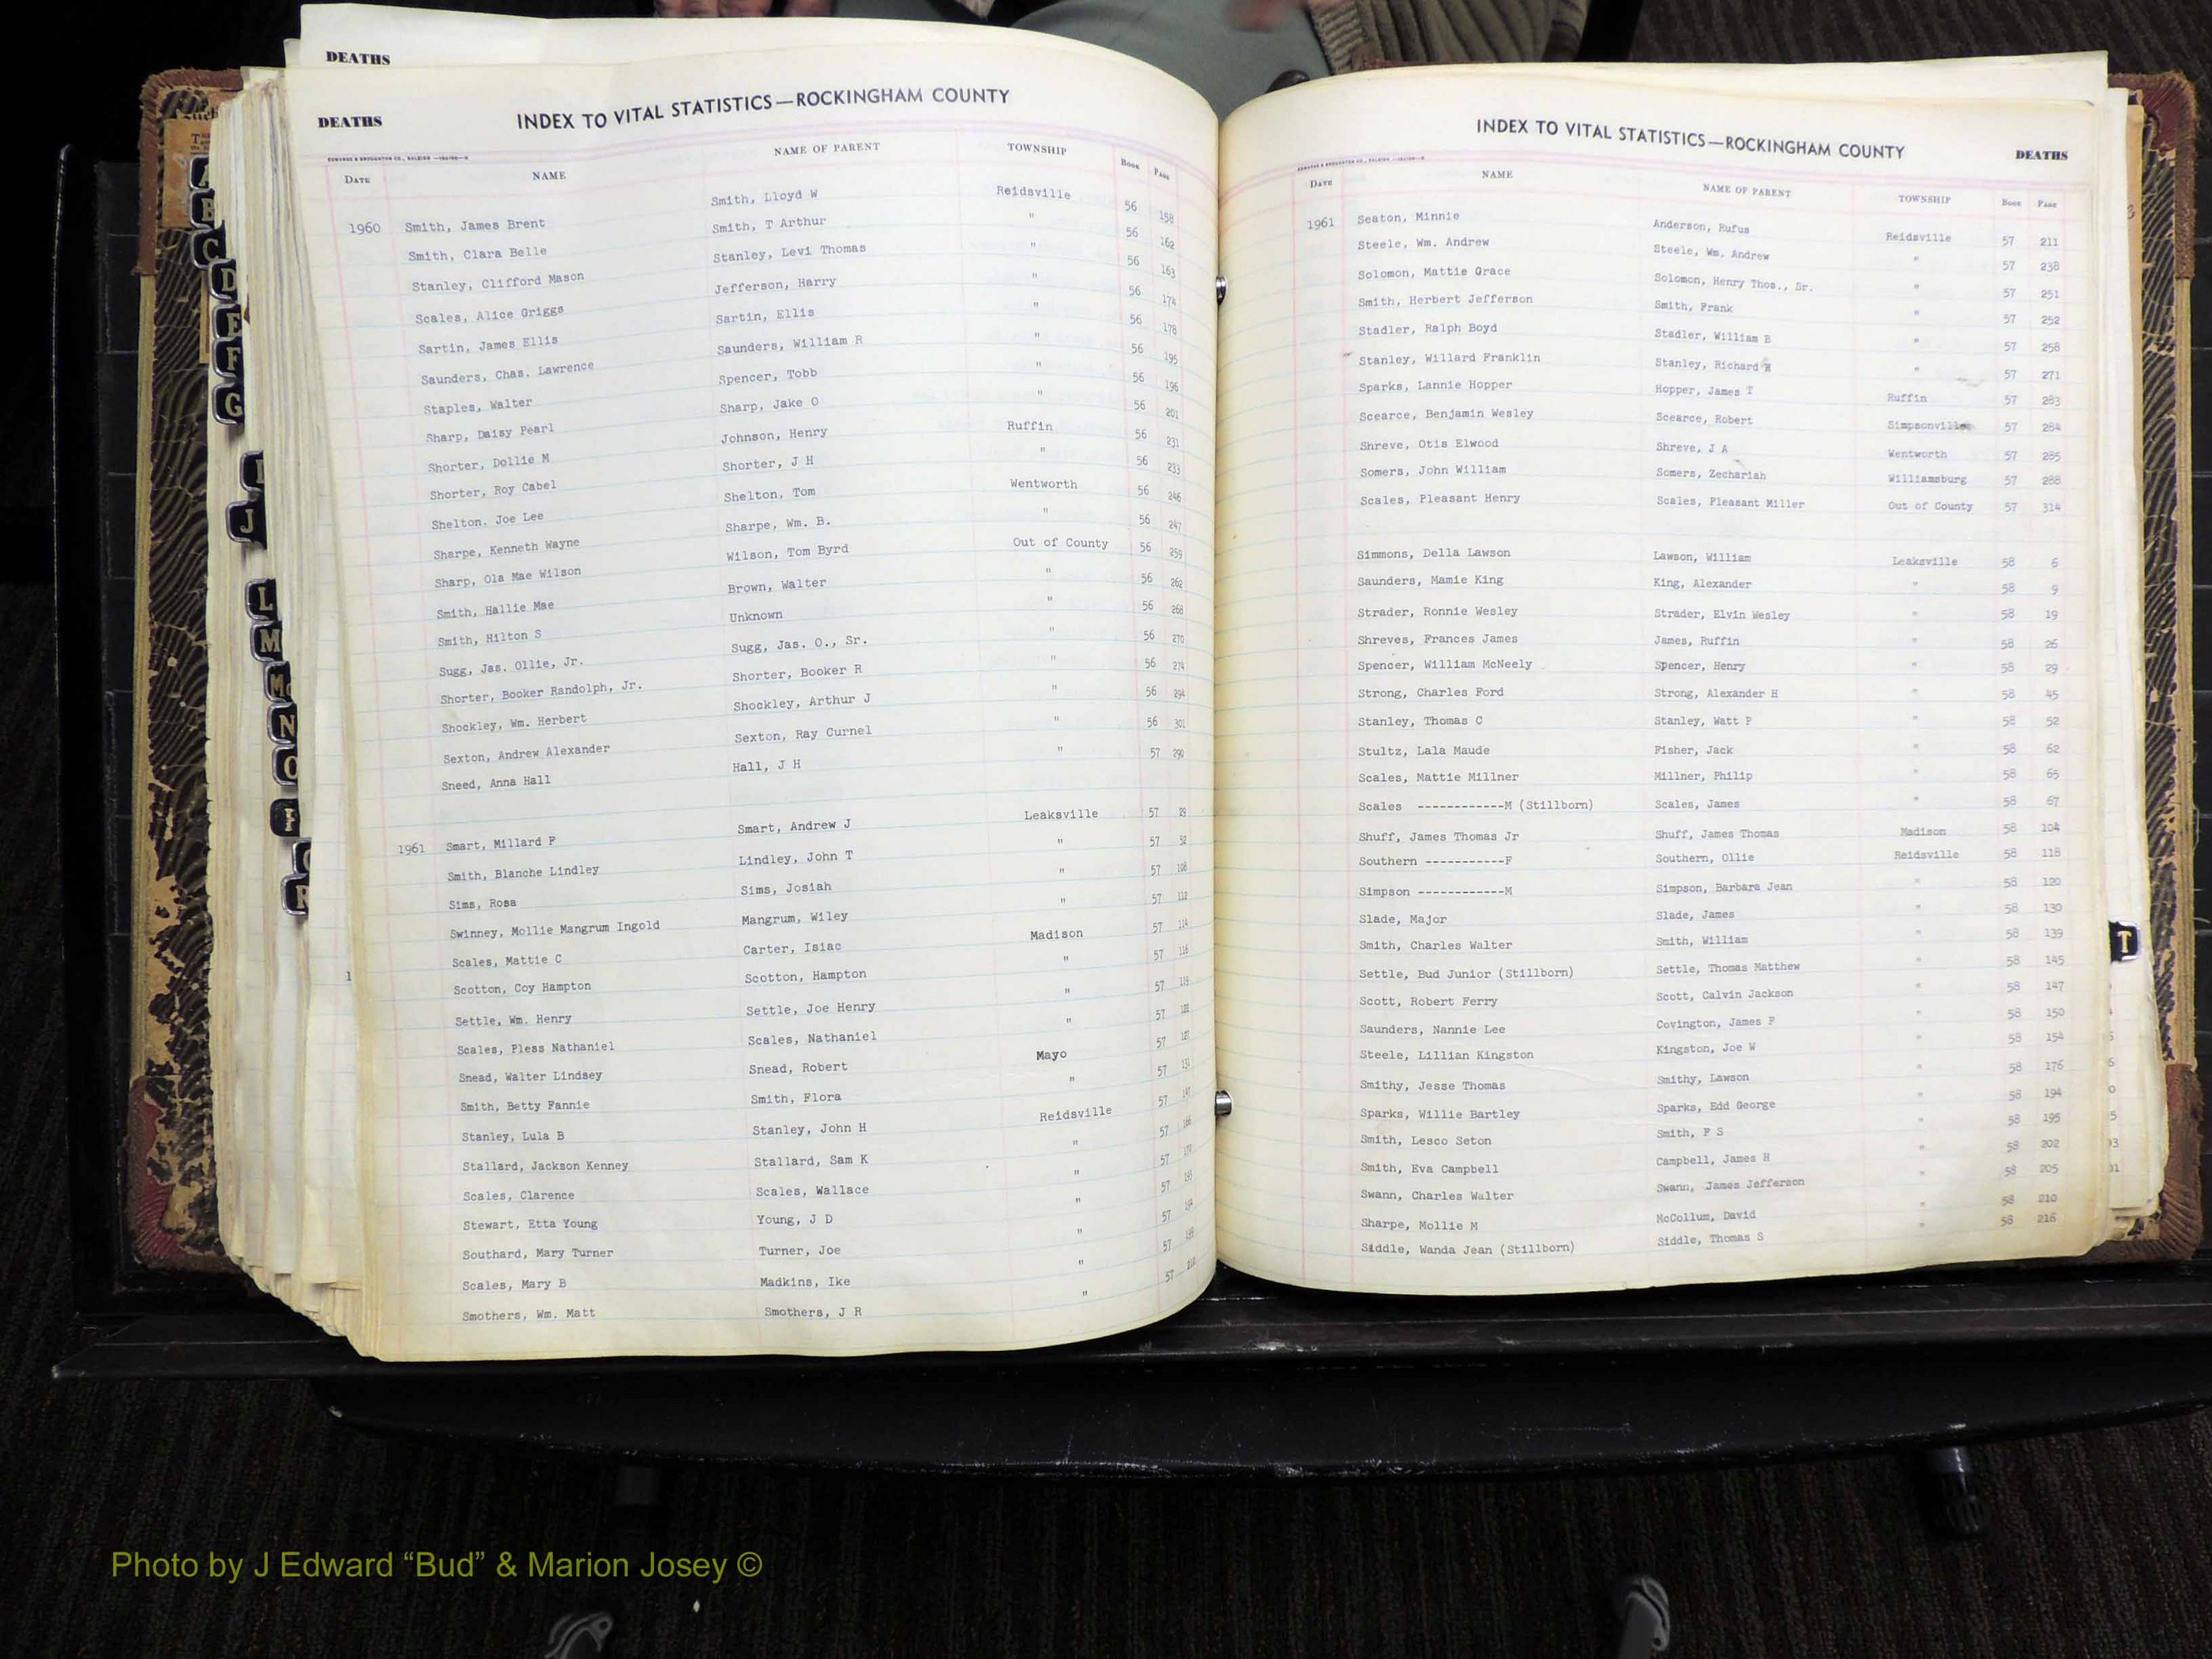 DEATHS
DEATHS
INDEX TO VITAL STATISTICS—ROCKINGHAM COUNTY
DATE NAME NAME OF PARENT TOWNSHIP Book Page
1960 Smith, James Brent Smith, Lloyd W Reidsville 56 158
Smith, Clara Belle Smith, T Arthur " 56 162
Stanley, Clifford Mason Stanley, Levi Thomas " 56 163
Scales, Alice Griggs Jefferson, Harry " 56 174
Sartin, James Ellis Sartin, Ellis " 56 178
Saunders, Chas. Lawrence Saunders, William R " 56 195
Staples, Walter Spencer, Tobb " 56 196
Sharp, Daisy Pearl Sharp, Jake O " 56 201
Shorter, Dollie M Johnson, Henry Ruffin 56 231
Shorter, Roy Cabel Shorter, J H " 56 233
Shelton, Joe Lee Shelton, Tom Wentworth 56 246
Sharpe, Kenneth Wayne Sharpe, Wm. B. " 56 247
Sharp, Ola Mae Wilson Wilson, Tom Byrd Out of County 56 259
Smith, Hallie Mae Brown, Walter " 56 262
Smith, Hilton S Unknown " 56 268
Sugg, Jas. Ollie, Jr. Sugg, Jas. O., Sr. " 56 270
Shorter, Booker Randolph, Jr. Shorter, Booker R " 56 274
Shockley, Wm. Herbert Shockley, Arthur J " 56 294
Sexton, Andrew Alexander Sexton, Ray Curnel " 56 301
Sneed, Anna Hall Hall, J H " 57 290
1961 Smart, Millard F Smart, Andrew J Leaksville 57 29
Smith, Blanche Lindley Lindley, John T " 57 52
Sims, Rosa Sims, Josiah " 57 108
Swinney, Mollie Mangrum Ingold Mangrum, Wiley " 57 112
Scales, Mattie C Carter, Isiac Madison 57 114
Scotton, Coy Hampton Scotton, Hampton " 57 116
Settle, Wm. Henry Settle, Joe Henry " 57
Scales, Pless Nathaniel Scales, Nathaniel " 57
Snead, Walter Lindsey Snead, Robert Mayo 57
Smith, Betty Fannie Smith, Flora " 57
Stanley, Lula B Stanley, John H Reidsville 57
Stallard, Jackson Kenney Stallard, Sam K " 57
Scales, Clarence Scales, Wallace " 57
Stewart, Etta Young Young, J D " 57
Southard, Mary Turner Turner, Joe " 57
Scales, Mary B Madkins, Ike " 57
Smothers, Wm. Matt Smothers, J R " 57
INDEX TO VITAL STATISTICS—ROCKINGHAM COUNTY
DEATHS
DATE NAME NAME OF PARENT TOWNSHIP Book Page
1961 Seaton, Minnie Anderson, Rufus Reidsville 57 211
Steele, Wm. Andrew Steele, Wm. Andrew " 57 238
Solomon, Mattie Grace Solomon, Henry Thos., Sr. " 57 251
Smith, Herbert Jefferson Smith, Frank " 57 252
Stadler, Ralph Boyd Stadler, William B " 57 258
Stanley, Willard Franklin Stanley, Richard " 57 271
Sparks, Lannie Hopper Hopper, James T Ruffin 57 283
Scearce, Benjamin Wesley Scearce, Robert Simpsonville 57 284
Shreve, Otis Elwood Shreve, J A Wentworth 57 285
Somers, John William Somers, Zechariah Williamsburg 57 288
Scales, Pleasant Henry Scales, Pleasant Miller Out of County 57 314
Simmons, Della Lawson Lawson, William Leaksville 58 6
Saunders, Mamie King King, Alexander " 58 9
Strader, Ronnie Wesley Strader, Elvin Wesley " 58 19
Shreves, Frances James James, Ruffin " 58 26
Spencer, William McNeely Spencer, Henry " 58 29
Strong, Charles Ford Strong, Alexander H " 58 45
Stanley, Thomas C Stanley, Watt P " 58 52
Stultz, Lala Maude Fisher, Jack " 58 62
Scales, Mattie Millner Millner, Philip " 58 65
Scales ------------M (Stillborn) Scales, James " 58 67
Shuff, James Thomas Jr Shuff, James Thomas Madison 58 104
Southern -----------F Southern, Ollie Reidsville 58 118
Simpson ------------M Simpson, Barbara Jean " 58 120
Slade, Major Slade, James " 58 130
Smith, Charles Walter Smith, William " 58 139
Settle, Bud Junior (Stillborn) Settle, Thomas Matthew " 58 145
Scott, Robert Ferry Scott, Calvin Jackson " 58 147
Saunders, Nannie Lee Covington, James P " 58 150
Steele, Lillian Kingston Kingston, Joe W " 58 154
Smithy, Jesse Thomas Smithy, Lawson " 58 176
Sparks, Willie Bartley Sparks, Edd George " 58 194
Smith, Lesco Seton Smith, F S " 58 195
Smith, Eva Campbell Campbell, James H " 58 202
Swann, Charles Walter Swann, James Jefferson " 58 205
Sharpe, Mollie M McCollum, David " 58 210
Siddle, Wanda Jean (Stillborn) Siddle, Thomas S " 58 216
A
B
C
D
E
F
G
I
J
L
M
Mc
N
O
P
R
T
Photo by J Edward “Bud” & Marion Josey ©